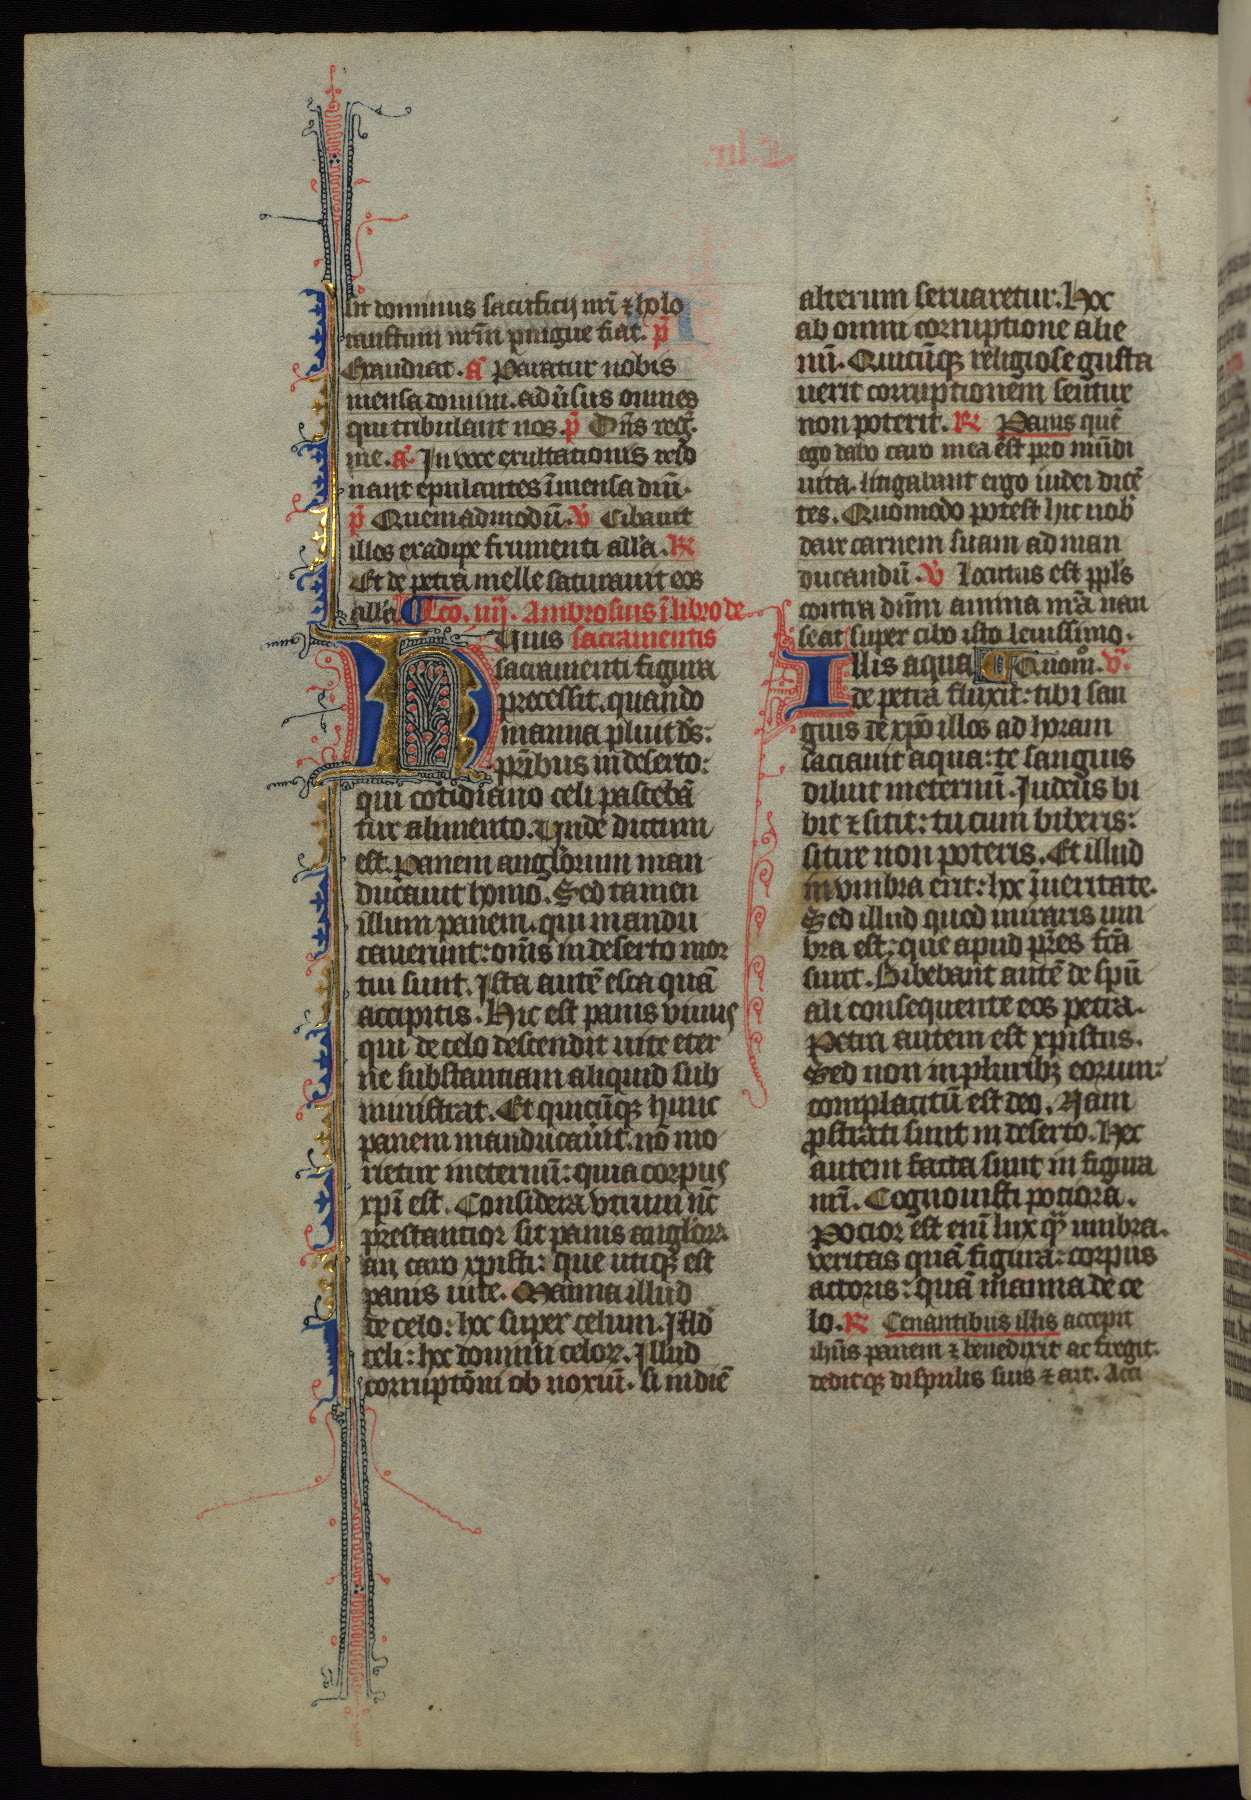 sit dominus sacrificij nr̄i ⁊ holo
caustum nr̄m pingue fiat. p̄
Exaudiat. a Paratur nobis
mensa domini. adūsus omnes
qui tribulant nos. p̄ Dn̄s reḡ
me. a Jn voce exultationis reso
nant epulantes ī mensa dn̄i.
p̄ Quemadmodū. v Cibauit
illos ex adipe frumenti all'a. R
Et de petra melle saturauit eos
all'a Lco. iiij. Ambrosius ī libro de
Huius sacramentis
sacramenti figura
precessit. quando
manna pluit ds̄.
pr̄ibus in deserto:
qui cotidiano celi pascebā
tur alimento. Unde dictum
est. Panem anglorum man
ducauit homo. Sed tamen
illum panem. qui mandu
cauerunt: om̄s in deserto mor
tui sunt. Jsta autē esca quā
accipitis. Hic est panis viuus
qui de celo descendit uite eter
ne substantiam aliquid sub
ministrat. Et quicūqꝫ hunc
panem manducauit. nō mo
rietur ineternū: quia corpus
xpī est. Considera vtrum nc̄
prestantior sit panis anglorꝝ
an caro xpisti: que utiqꝫ est
panis uite. Manna illud
de celo: hoc super celum. Jllđ
celi: hoc domini celorꝝ. Jllud
corruptōni obnoxiū. si in diē
alterum seruaretur. Hoc
ab omni corruptione alie
nū. Quicūqꝫ religiose gusta
uerit corruptionem sentire
non poterit. R Panis quē
ego dabo caro mea est pro mūdi
uita. litigabant ergo iudei dicē
tes. Quomodo potest hic nob̄
dare carnem suam ad man
ducandū. v Locutus est pp̄ls
contra dn̄m anima nr̄a nau
seat super cibo isto leuissimo.
Jllis aqua Quom̊. v
de petra fluxit: tibi san
guis de xpō illos ad horam
saciauit aqua: te sanguis
diluit ineternū. Judeus bi
bit ⁊ sitit: tu cum biberis:
sitire non poteris. Et illud
in vmbra erit: hoc ī ueritate.
Sed illud quod miraris um
bra est: que apud pr̄es fc̄a
sunt. Bibebant autē de spū
ali consequente eos petra.
Petra autem est xpistus.
Sed non in pluribꝫ eorum:
complacitū est deo. Nam
ꝓstrati sunt in deserto. Hec
autem facta sunt in figura
nr̄i. Cognouisti potiora.
Pocior est eni lux qꝫ umbra.
veritas quā figura: corpus
actoris: quā manna de ce
lo. R Cenantibus illis accepit
ihūs panem ⁊ benedixit ac fregit.
deditqꝫ discipulis suis ⁊ ait. Acci